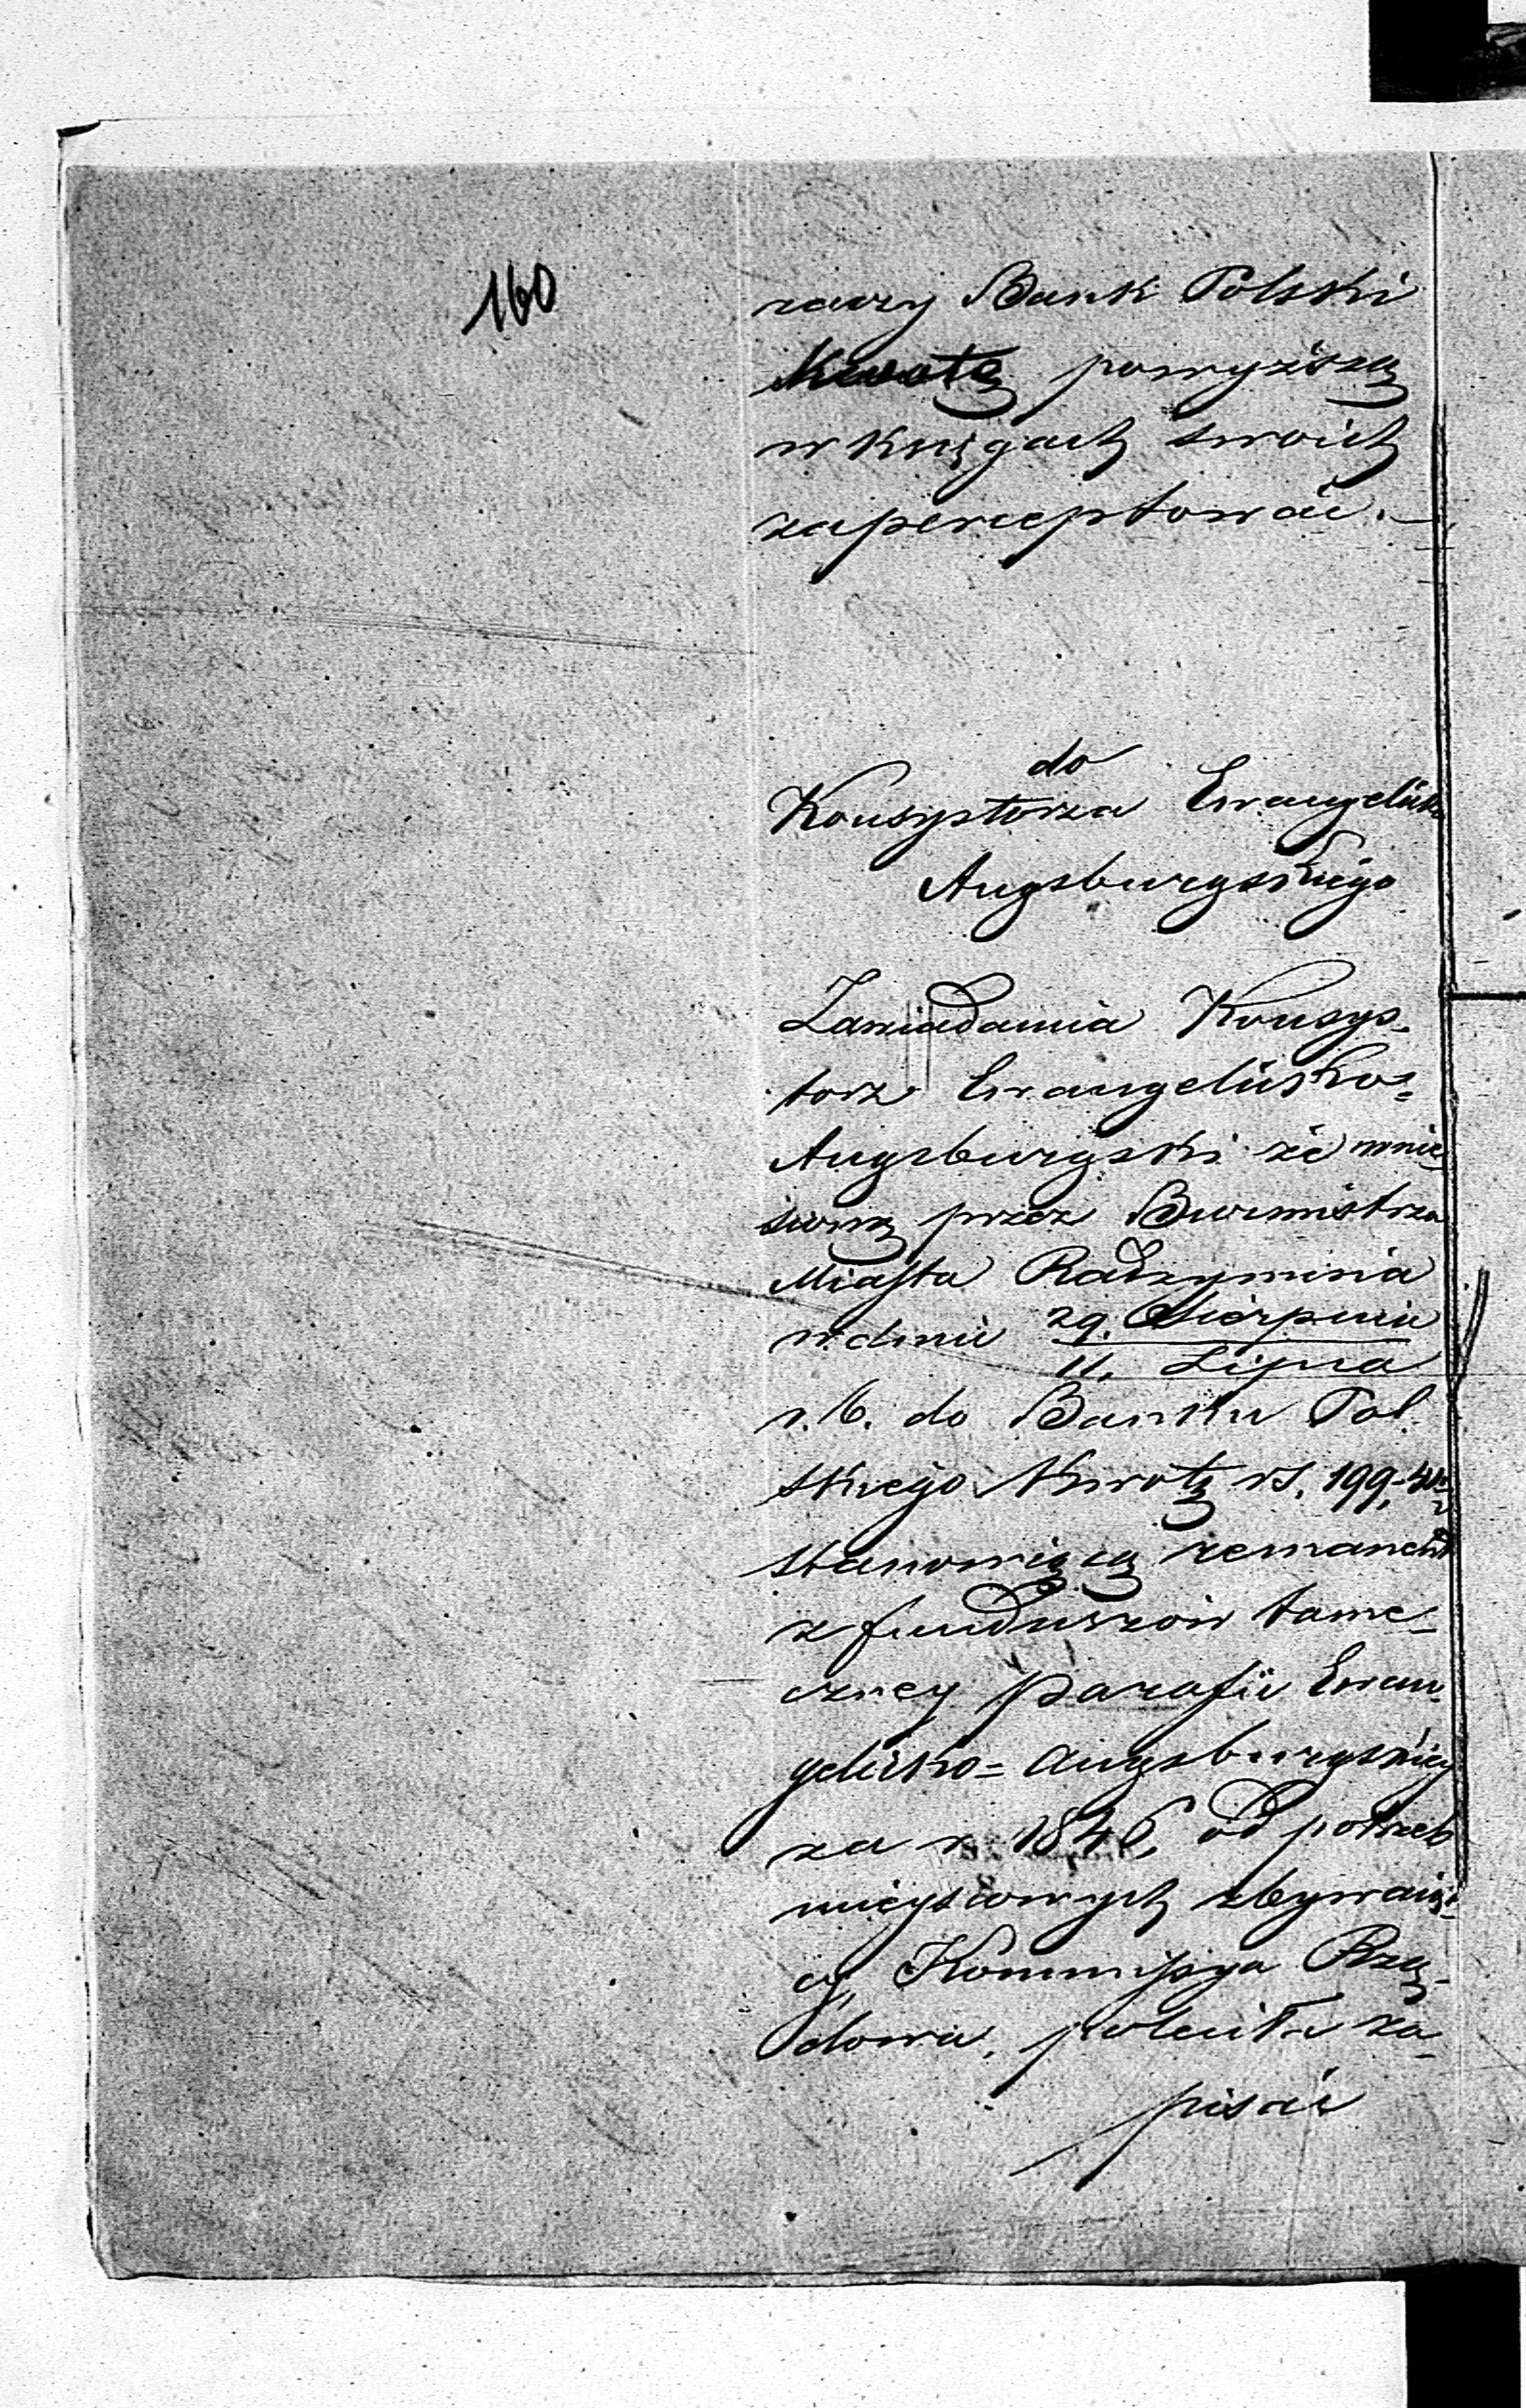 160
raczy Bank Polski
Kwotę powyższą
w Księgach swoich
zaperceptować. —
do
Konsystorza Ewangelicko
Augsburgskiego
Zawiadamia Konsys-
torz Ewangelicko=
Augsburgski że wnie-
sioną przez Burmistrza
Miasta Radzymina
w dniu 29. Sierpnia
11. Lipca
r. b. do Banku Pol
skiego Kwotę rs. 199,
stanowiącą remanent
z funduszów tame-
czney parafii Ewan-
gelicko= Augsburgskiey
za r. 1846, od potrzeb
mieyscowych zbywaią-
cy, Kommissya Rzą-
dowa, poleciła za-
pisać